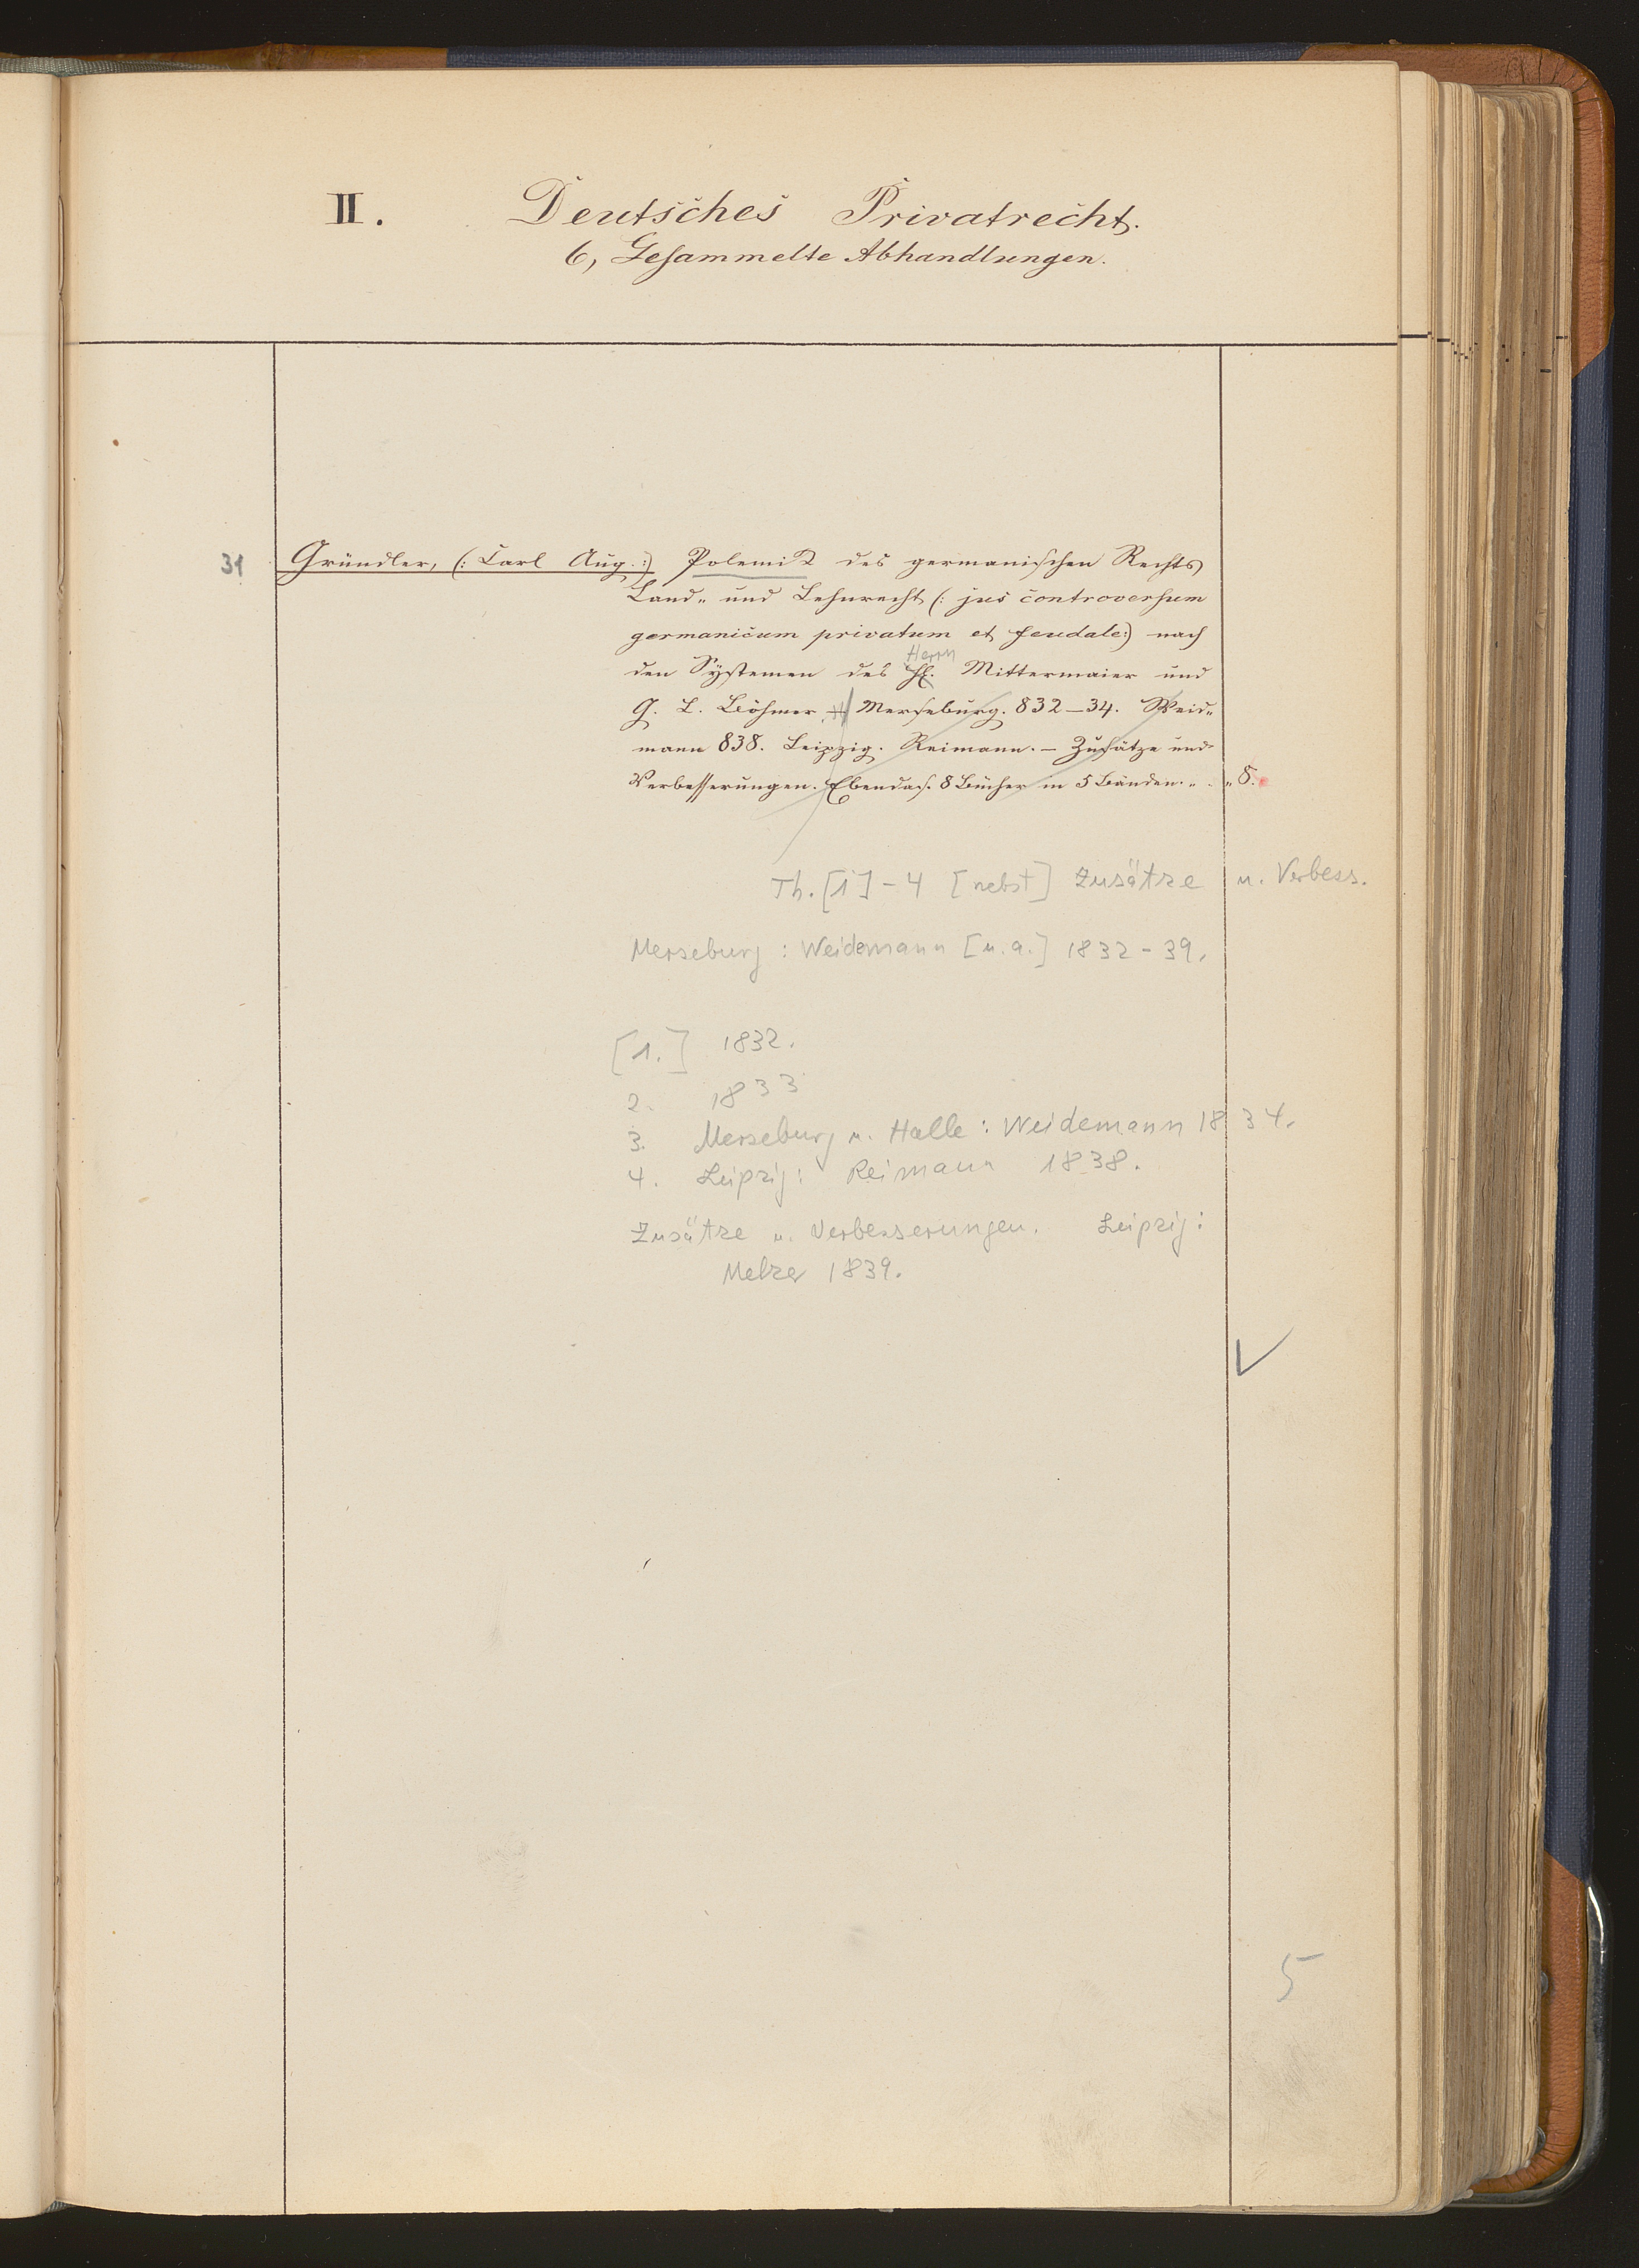 II. Deutsches Privatrecht.
6, Gesammelte Abhandlungen.
31 Gründler, (: Carl Aug. :) Polemik des germanischen Rechts
Land- und Lehnrecht (: jus controversum
germanicum privatum et feudale:) nach
Herrn
den Systemen des H. Mittermaier und
G. L. Böhmer Merseburg. 832–34. Weid-
mann 838. Leipzig. Reimann. – Zusätze und
Verbesserungen. Ebendas. 8 Bücher in 5 Bänden. „ . „ 8.
Th. [1] - 4 [nebst] Zusätze u. Verbess.
Merseburg : Weidemann [u. a.] 1832 - 39.
[1.] 1832.
2. 1833
3. Merseburg u. Halle : Weidemann 1834.
4. Leipzig : Reimann 1838.
Zusätze u. Verbesserungen. Leipzig :
Melzer 1839.
5